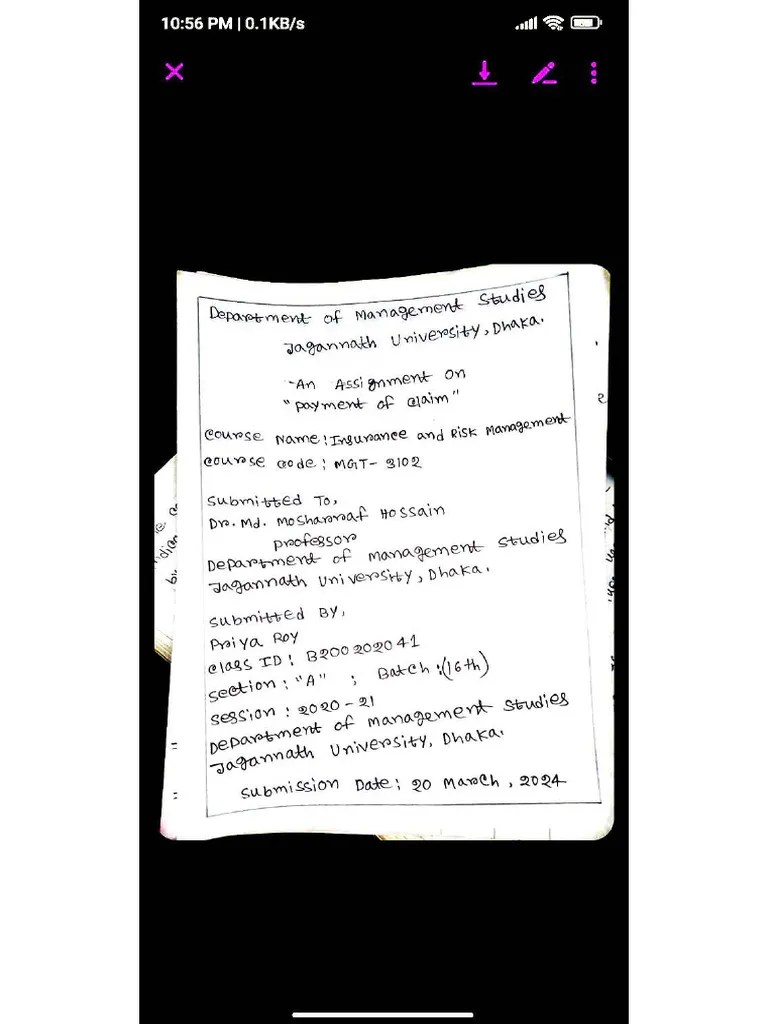 10:56 PM | 0.1KB/s
Department of Management Studies
Jagannath University, Dhaka.
An Assignment on
"Payment of Claim"
Course Name: Insurance and Risk Management
Course Code: MGT-3102
Submitted To,
Dr. Md. Mosharraf Hossain
Professor
Department of Management Studies
Jagannath University, Dhaka.
Submitted By,
Priya Roy
Class ID: B200202041
Section: "A" ; Batch: (16th)
Session: 2020-21
Department of Management Studies
Jagannath University, Dhaka.
Submission Date: 20 March, 2024